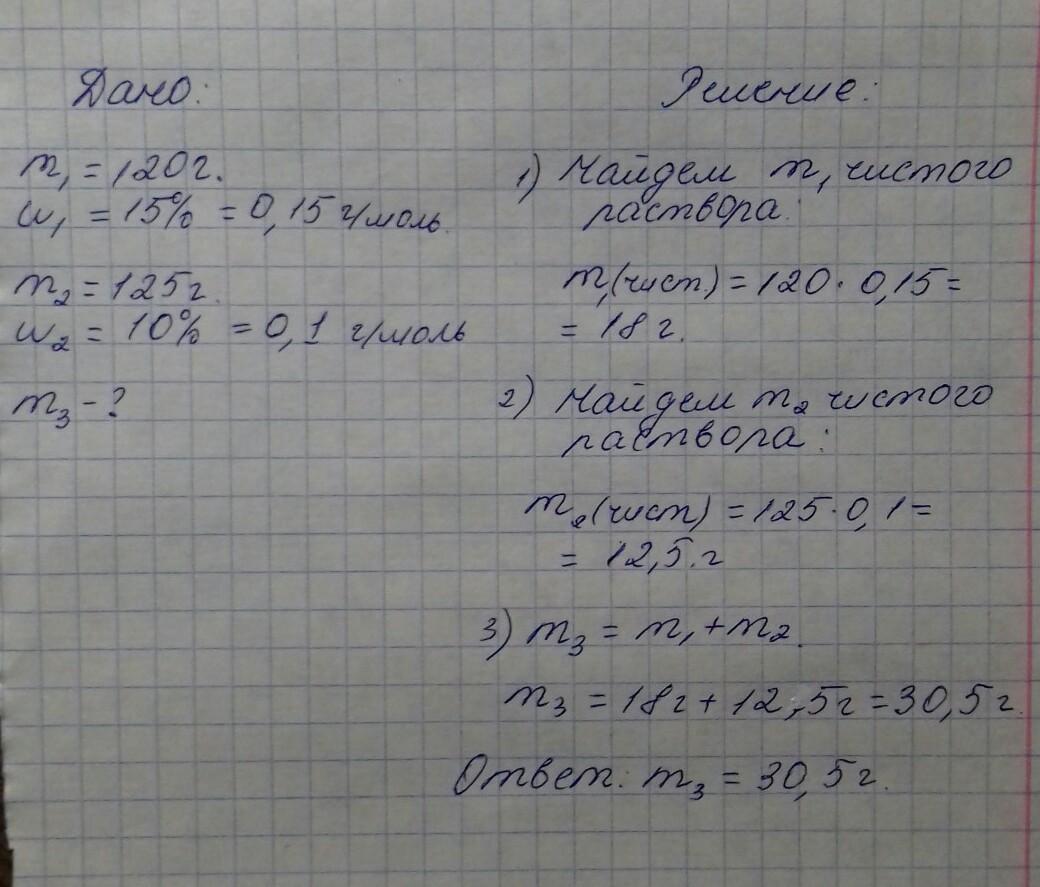 Дано:
m₁ = 120г.
w₁ = 15% = 0,15 г/моль.
m₂ = 125г.
w₂ = 10% = 0,1 г/моль
m₃ - ?
Решение:
1) Найдем m₁ чистого
раствора:
m₁(чист.) = 120 · 0,15 =
= 18 г.
2) Найдем m₂ чистого
раствора:
m₂(чист) = 125 · 0,1 =
= 12,5.г
3) m₃ = m₁ + m₂.
m₃ = 18г + 12,5г = 30,5г.
Ответ: m₃ = 30,5г.